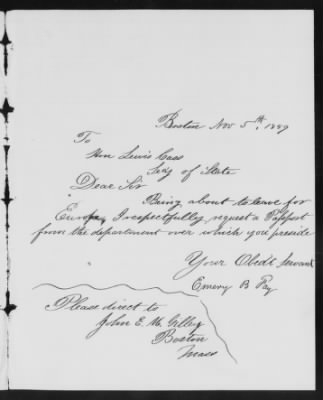 Boston Nov 5th, 1859
To
Hon Lewis Cass
Secy of State
Dear Sir
Being about to leave for
Europe, I respectfully request a Passport
from the department over which you preside
Your Obedt. Servant
Emery B Fay
Please direct to
John E. M. Gilley
Boston
Mass